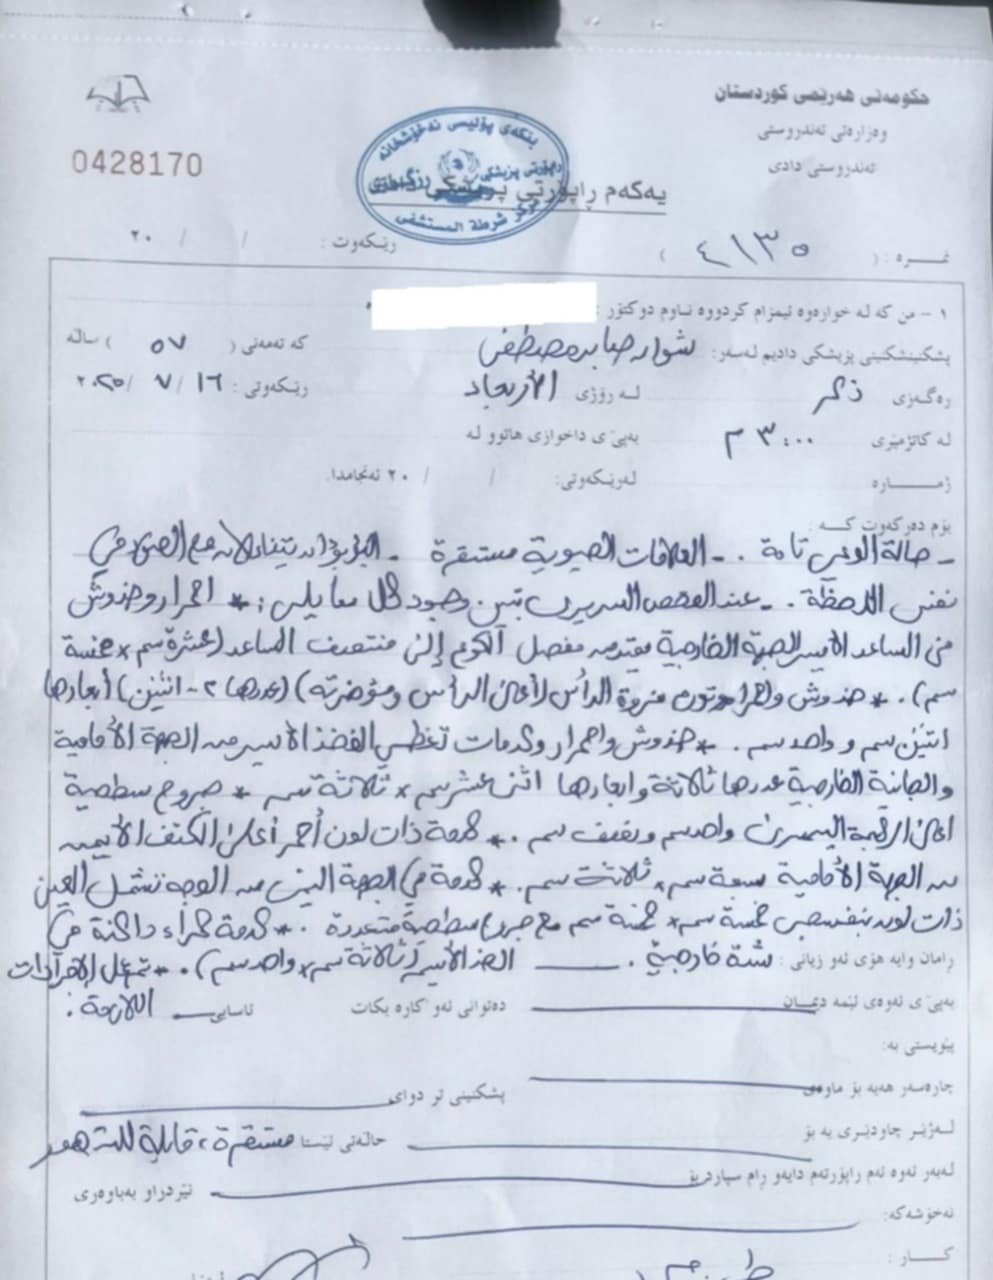 حکومەتی هەرێمی کوردستان
وەزارەتی تەندروستی
تەندروستی دادی
0428170
بنکەی پۆلیسی نەخۆشخانە
ڕاپۆرتی پزیشکی
مركز شرطة المستشفى
یەکەم ڕاپۆرتی پزیشکی
نمـــرە : ( ٤١٣٥ )
ڕێکەوت : / / ٢٠
١ - من کە لە خوارەوە ئیمزام کردووە ناوم دوکتۆر :
پشکنیشکنینی پزیشکی دادیم لەسەر: شوان صابر مصطفى کە تەمەنی ( ٥٧ ) ساڵە
ڕەگەزی ذكر لـە ڕۆژی الأربعاء ڕێکەوتی : ١٦ / ٧ / ٢٠٢٥
لە کاتژمێری ٣:٠٠ م بەپێ ی داخوازی هاتوو لە
ژمـــارە لەڕێکەوتی: / / ٢٠ ئەنجامدا.
بۆم دەرکەوت کـــە :
- حالة الوعي تامة . - العلامات الحيوية مستقرة - في
نفس اللحظة . - عند الفحص السريري تبين وجود كل مما يلي : * احمرار وخدوش
في الساعد الأيسر الجهة الخارجية يمتد من مفصل الكوع إلى منتصف الساعد (عشرة سم * خمسة
سم) . * خدوش فروة الرأس لأعلى الرأس ومؤخرته (عددها ٢ - اثنين) أبعادها
اثنين سم و واحد سم . * خدوش واحمرار وكدمات تغطي الفخذ الأيسر من الجهة الأمامية
والجانبية الخارجية عددها ثلاثة وابعادها اثنى عشر سم * ثلاثة سم * جروح سطحية
اعلى الرقبة اليسرى واحد سم ونصف سم . * كدمة ذات لون أحمر أعلى الكتف الأيمن
من الجهة الأمامية سبعة سم * ثلاثة سم . * كدمة في الجهة اليمنى من الوجه تشمل العين
ذات لون بنفسجي خمسة سم * خمسة سم مع جروح سطحية متعددة . * كدمة حمراء داكنة في
ڕامان وایە هۆی ئەو زیانی : شدة خارجية . الخد الأيسر (ثلاثة سم * واحد سم) . * تم عمل الإجراءات
بەپێ ی ئەوەی ئێمە دیمان دەتوانی ئەو کارە بکات ئاسایی اللازمة .
پێویستی بە:
چارەسەر هەیە بۆ ماوەی پشکنینی تر دوای
لـەژێـر چاودێـری یە بۆ حاڵەتی ئێستا مستقرة ، قابلة للتدهور
لەبەر ئەوە ئەم ڕاپۆرتەم دایەو ڕام سپاردبۆ نێردراو بەباوەڕی
نەخۆشەکە:
کــار :